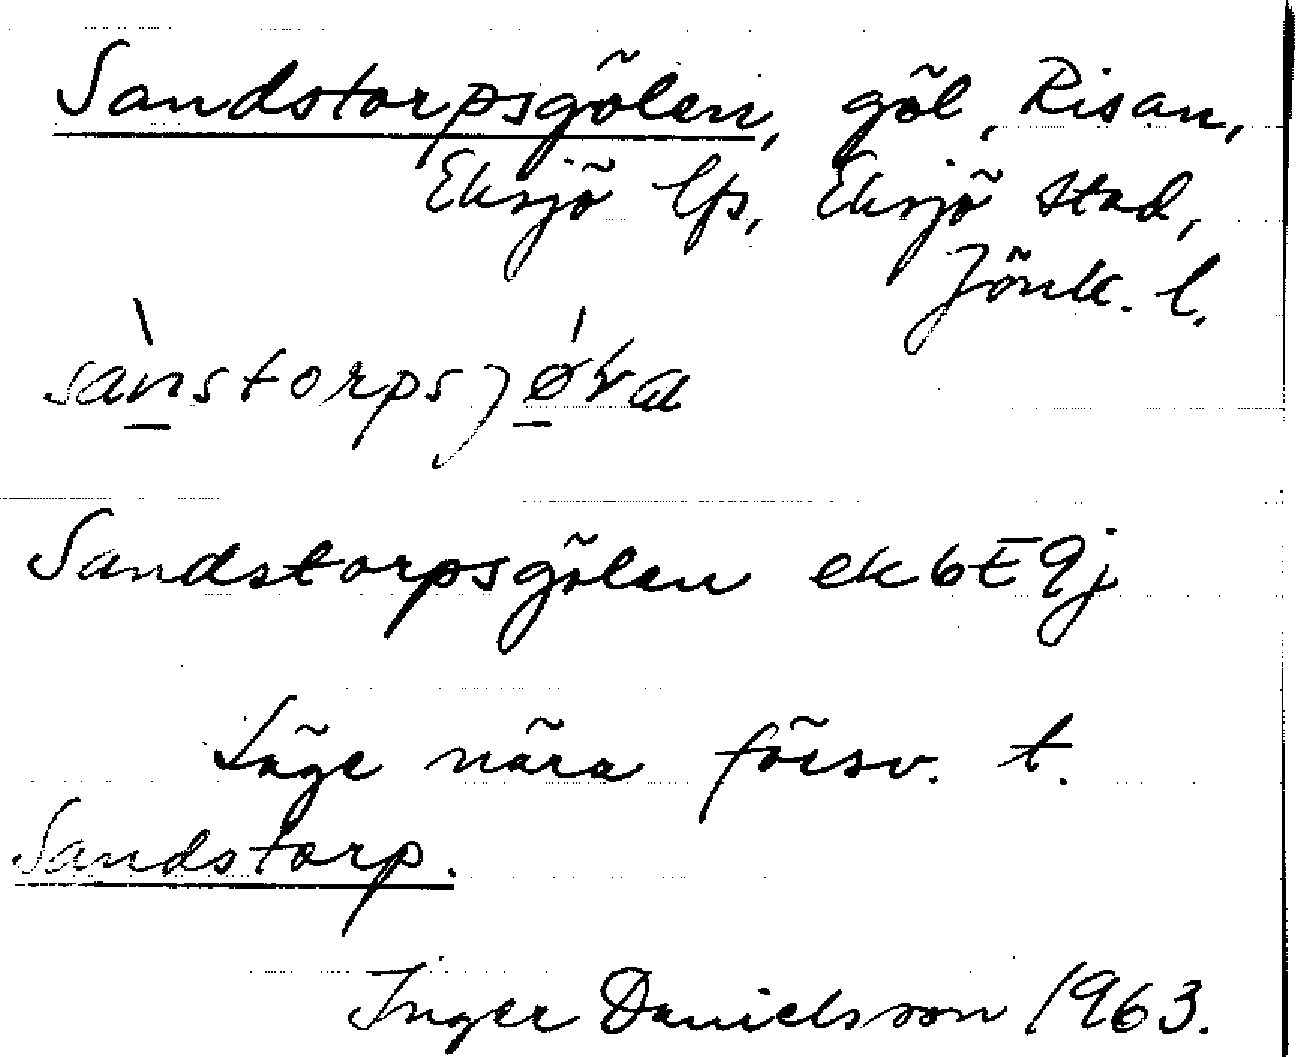 Sandstorpsgölen, göl, Risan,
Eksjö lfs, Eksjö stad,
Jönk. l.
Sandstorpsgölen ek6E9j
Läge nära försv. t.
Sandstorp.
Inger Danielsson 1963.